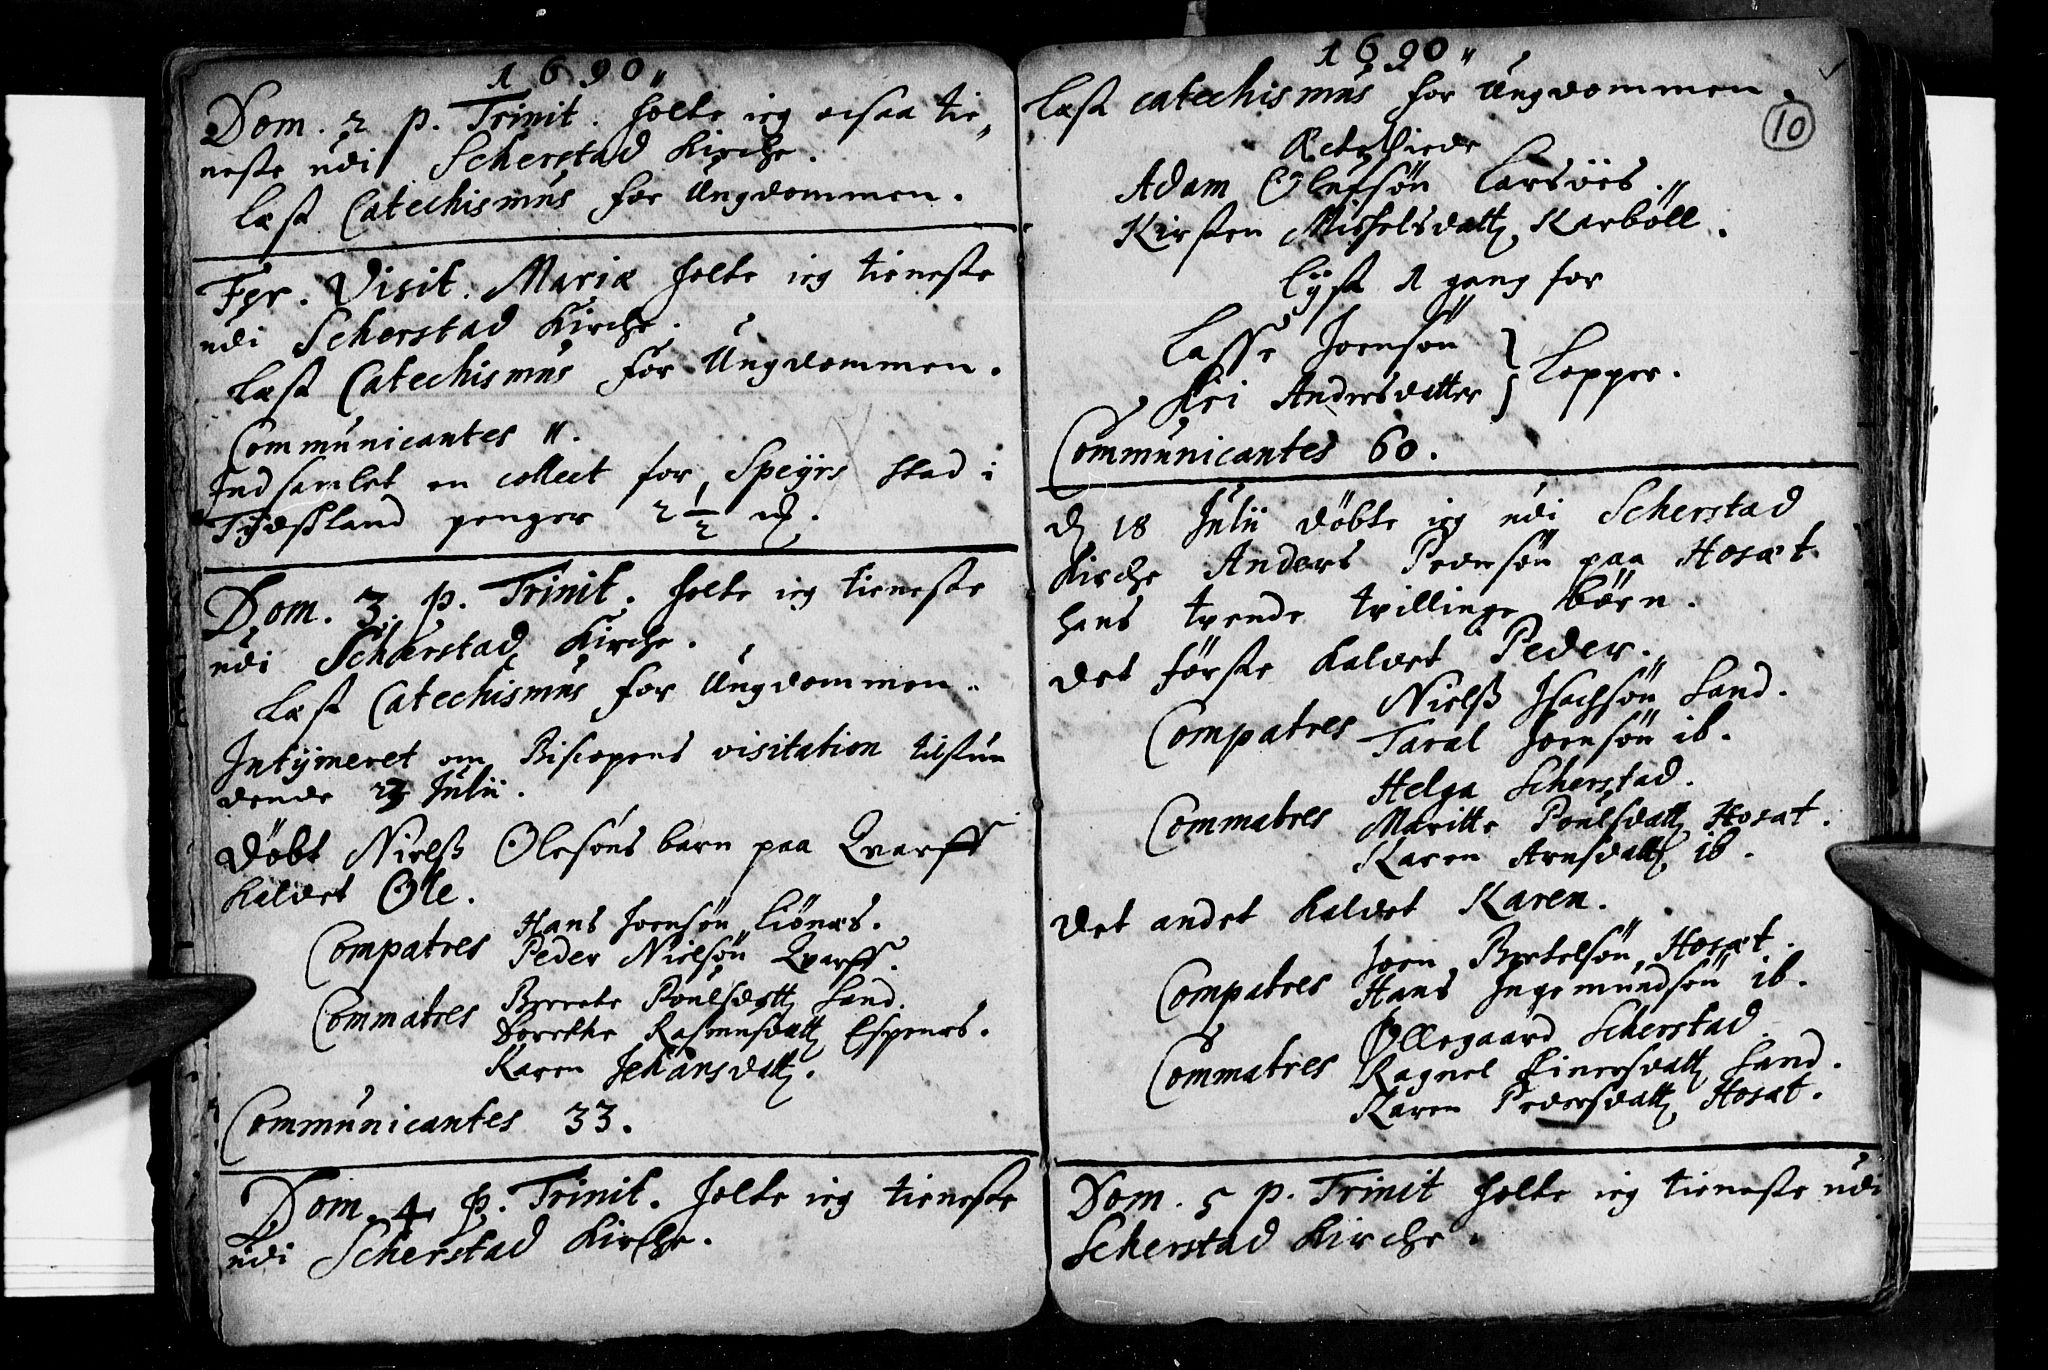 1690
Dom. 2 p. Trinit. holte ieg ocsaa tie„
neste udi Scherstad Kirche.
Læst Catechismus for Ungdommen.
Fer. Visit. Mariæ holte ieg tieneste
udi Scherstad Kirche.
Læst Catechismus for Ungdommen.
Communicantes
Indsamlet en collect for Speyrs stad i
Tydskland penger 2 1/2
Dom. 3. p. Trinit. holte ieg tieneste
udi Scherstad Kirche.
Læst Catechismus for Ungdommen.
Intymeret om Biscopens visitation tilstun
dende Julii.
Døbt Nielß Olesøns barn paa Qvarff
kaldet Ole.
Compatres Hans Joensøn Liönæs.
Peder Nielsøn Qvarff.
Commatres Berete Poulsdatt Sand.
Dorethe Rasmusdatt Espenes.
Karen Johansdatt.
Communicantes 33.
Dom. 4 p. Trinit. holte ieg tieneste
udi Scherstad Kirche.
1690
10
Læst catechismus for Ungdommen.
Adam Olufsøn
Kirsten Michelsdatt Karböll.
Lyst 1 gang for
Lasse Joensøn
Kri Andersdatter } Lopper.
Communicantes 60.
d 18 Julii döbte ieg udi Scherstad
Kirche Anders Pedersøn paa Hosæt
hans tvende tvillinge börn.
det förste kaldet Peder.
Compatres Nielß Isachsön Sand.
Taral Joensön ib.
Helga Scherstad.
Commatres Maritte Poulsdatt Hosat.
Karen Arnsdatt ib.
det andet kaldet Karen.
Compatres Joen Bertelsön Hosæt.
Hans Ingemundsön ib.
Øllegaard Scherstad.
Commatres Ragnel Einersdatt Sand.
Karen Pedersdatt Hosæt.
Dom. 5 p. Trinit holte ieg tieneste udi
Scherstad Kirche.